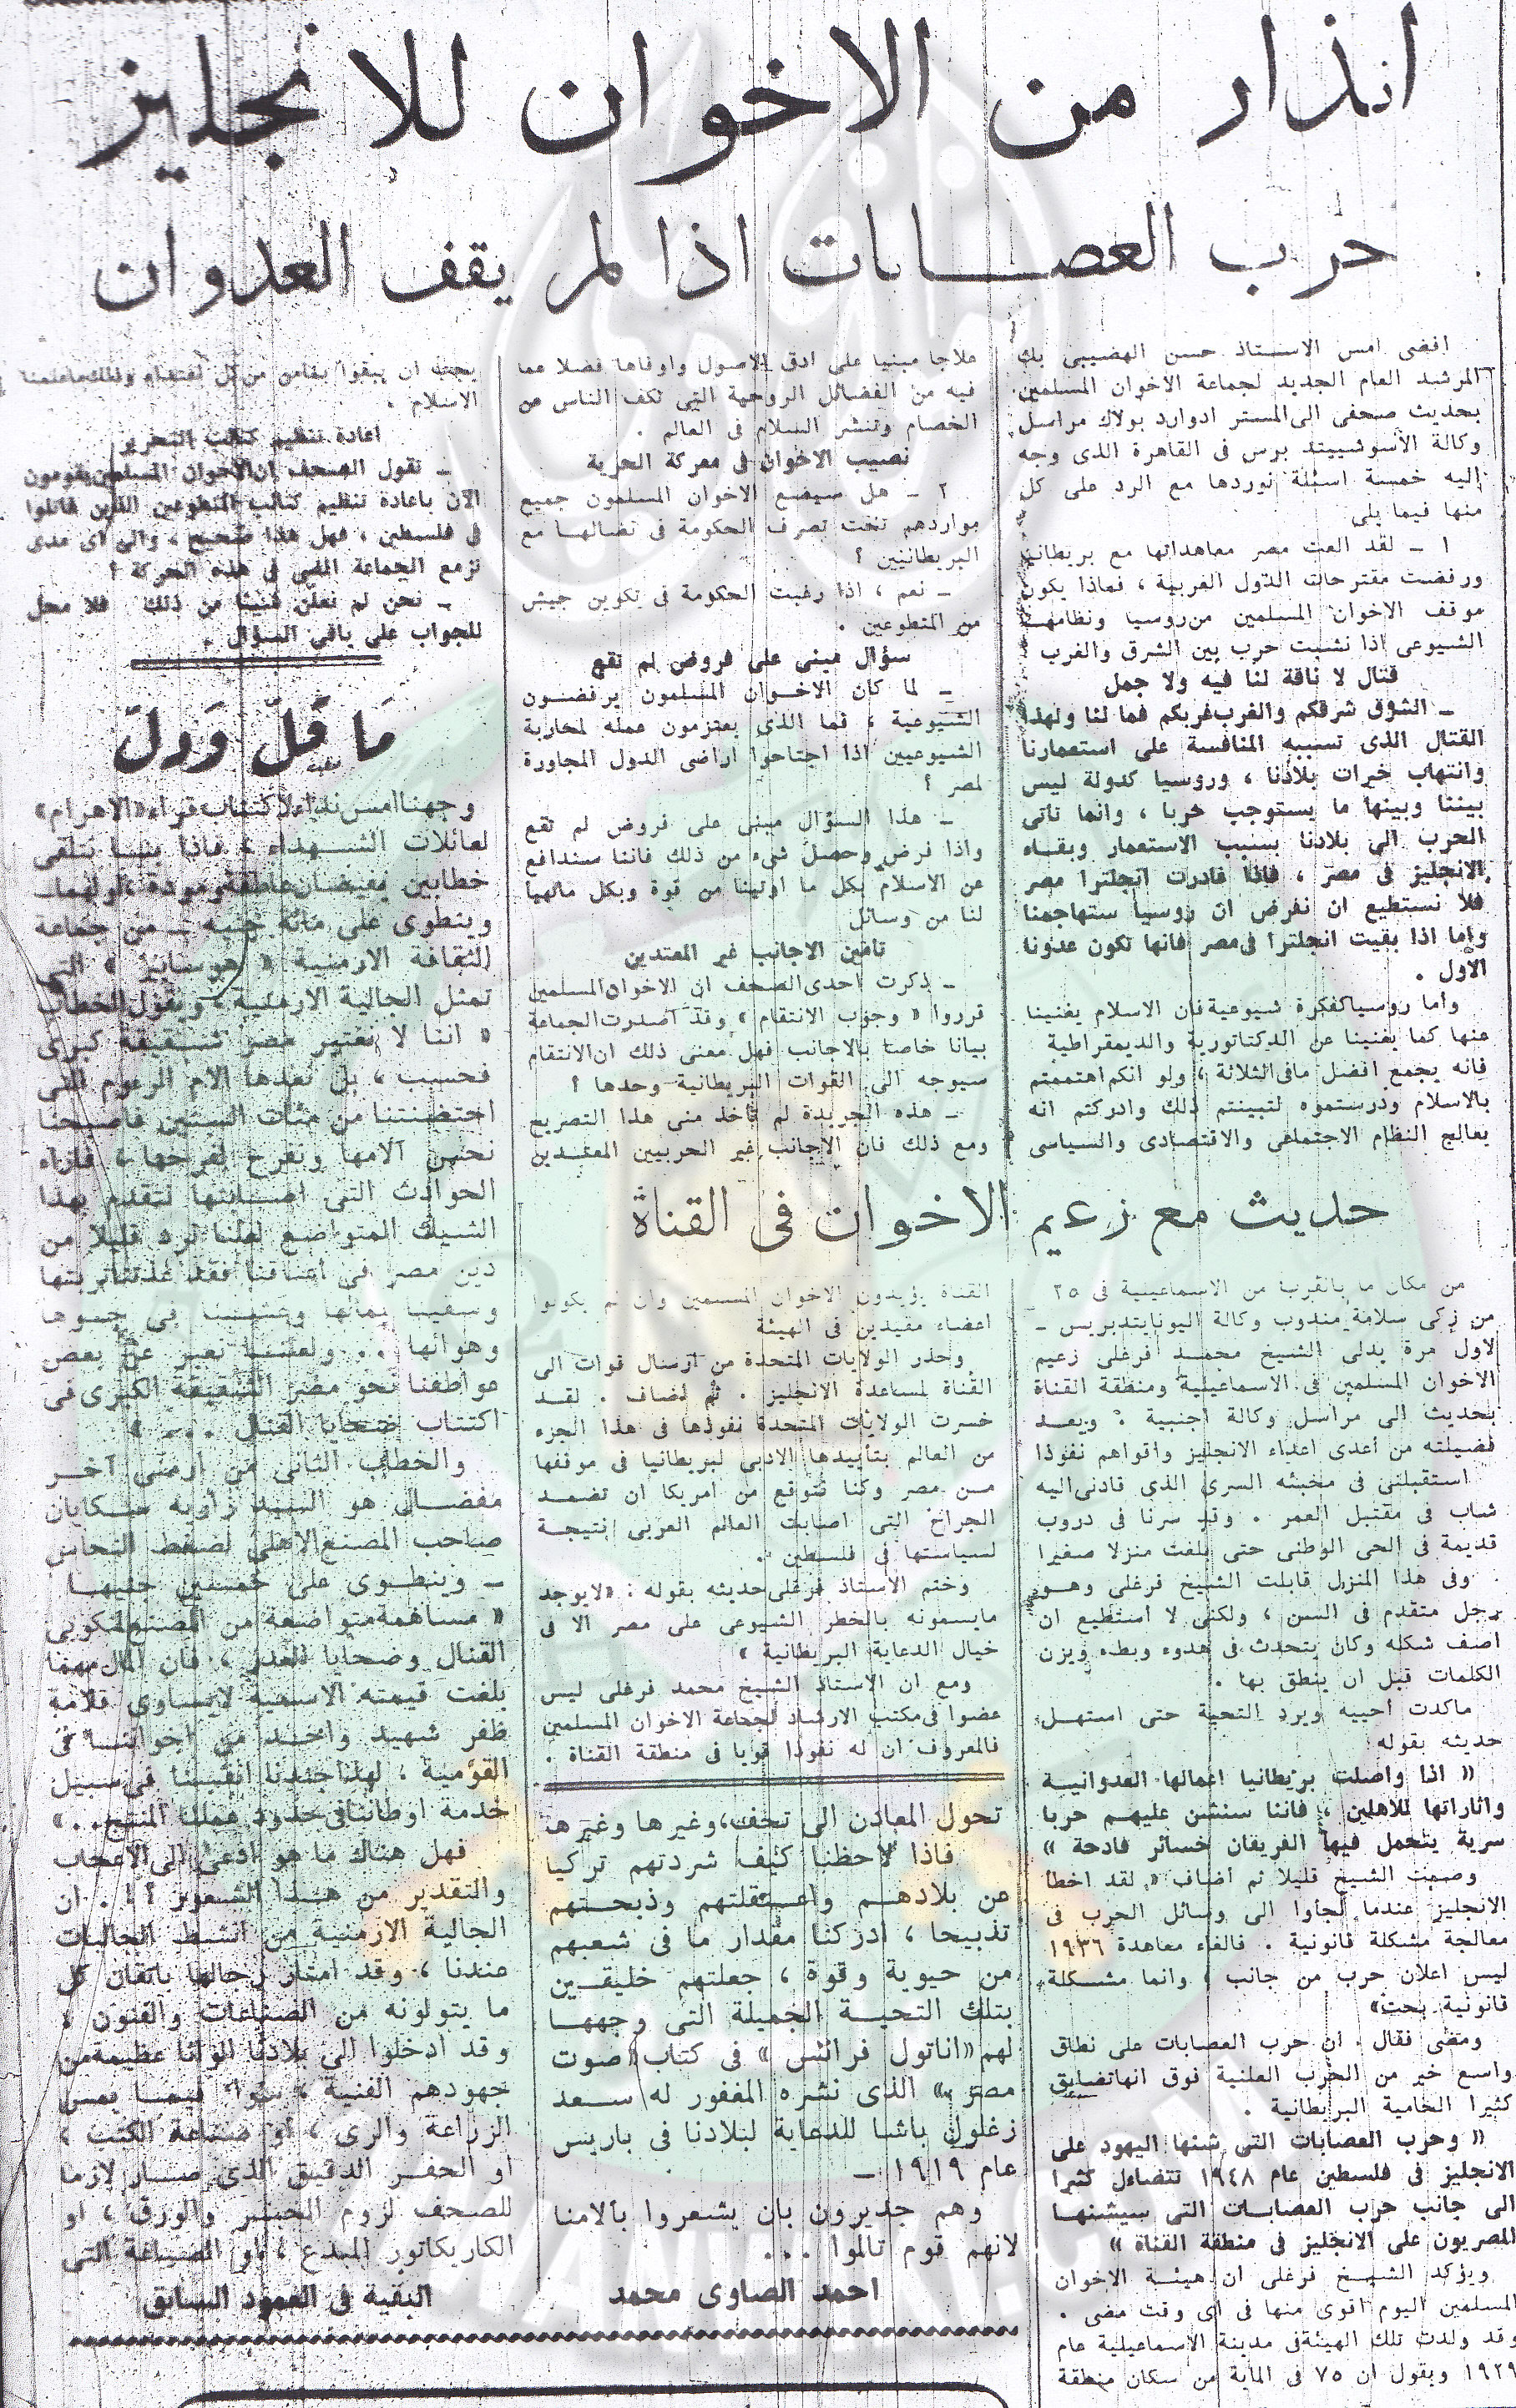 انذار من الاخوان للانجليز
حرب العصابات اذا لم يقف العدوان
افضى امس الاستاذ حسن الهضيبى بك
المرشد العام الجديد لجماعة الاخوان المسلمين
بحديث صحفى الى المستر ادوارد بولاك مراسل
وكالة الأسوشييتد برس فى القاهرة الذى وجه
اليه خمسة اسئلة نوردها مع الرد على كل
منها فيما يلى
١ ـ لقد الغت مصر معاهداتها مع بريطانيا
ورفضت مقترحات الدول الغربية ، فماذا يكون
موقف الاخوان المسلمين من روسيا ونظامها
الشيوعى اذا نشبت حرب بين الشرق والغرب
قتال لا ناقة لنا فيه ولا جمل
ـ الشرق شرقكم والغرب غربكم فما لنا ولهذا
القتال الذى تسببه المنافسة على استعمارنا
وانتهاب خيرات بلادنا ، وروسيا كدولة ليس
بيننا وبينها ما يستوجب حربا ، وانما تأتى
الحرب الى بلادنا بسبب الاستعمار وبقاء
الانجليز فى مصر ، فاذا غادرت انجلترا مصر
فلا نستطيع ان نفرض ان روسيا ستهاجمنا
واما اذا بقيت انجلترا فى مصر فانها تكون عدونا
الاول .
واما روسيا كفكرة شيوعية فان الاسلام يغنينا
عنها كما يغنينا عن الدكتاتورية والديمقراطية
فانه يجمع افضل ما فى الثلاثة ، ولو انكم اهتممتم
بالاسلام ودرستموه لتبينتم ذلك وادركتم انه
يعالج النظام الاجتماعى والاقتصادى والسياسى
علاجا مبنيا على ادق الاصول واوفاها فضلا عما
فيه من الفضائل الروحية التى تكف الناس عن
الخصام وتنشر السلام فى العالم .
نصيب الاخوان فى معركة الحرية
٢ ـ هل سيضع الاخوان المسلمون جميع
مواردهم تحت تصرف الحكومة فى نضالها مع
البريطانيين ؟
ـ نعم ، اذا رغبت الحكومة فى تكوين جيش
من المتطوعين .
سؤال مبنى على فروض لم تقع
ـ لما كان الاخوان المسلمون يرفضون
الشيوعية ، فما الذى يعتزمون عمله لمحاربة
الشيوعيين اذا اجتاحوا اراضى الدول المجاورة
لمصر ؟
ـ هذا السؤال مبنى على فروض لم تقع
واذا فرض وحصل شىء من ذلك فاننا سندافع
عن الاسلام بكل ما اوتينا من قوة وبكل ما تهيأ
لنا من وسائل
تأمين الاجانب غير المعتدين
ـ ذكرت احدى الصحف ان الاخوان المسلمين
قرروا « وجوب الانتقام » وقد اصدرت الجماعة
بيانا خاصا بالاجانب فهل معنى ذلك ان الانتقام
سيوجه الى القوات البريطانية وحدها ؟
ـ هذه الجريدة لم تأخذ منى هذا التصريح
ومع ذلك فان الاجانب غير الحربيين المعتدين
يجب ان يبقوا بمأمن من كل اعتداء وذلك ما علمنا
الاسلام .
اعادة تنظيم كتائب التحرير
ـ تقول الصحف ان الاخوان المسلمين يقومون
الآن باعادة تنظيم كتائب المتطوعين الذين قاتلوا
فى فلسطين ، فهل هذا صحيح ، والى اى مدى
تزمع الجماعة المضى فى هذه الحركة ؟
ـ نحن لم نعلن شيئا من ذلك فلا محل
للجواب على باقى السؤال .
حديث مع زعيم الاخوان فى القناة
من مكان ما بالقرب من الاسماعيلية فى ٢٥ ـ
من زكى سلامة مندوب وكالة اليونايتدبريس ـ
لاول مرة يدلى الشيخ محمد فرغلى زعيم
الاخوان المسلمين فى الاسماعيلية ومنطقة القناة
بحديث الى مراسل وكالة اجنبية . ويعد
فضيلته من أعدى اعداء الانجليز واقواهم نفوذا
استقبلنى فى مخبئه السرى الذى قادنى اليه
شاب فى مقتبل العمر . وقد سرنا فى دروب
قديمة فى الحى الوطنى حتى بلغت منزلا صغيرا
وفى هذا المنزل قابلت الشيخ فرغلى وهو
رجل متقدم فى السن ، ولكنى لا استطيع ان
اصف شكله وكان يتحدث فى هدوء وبطء ويزن
الكلمات قبل ان ينطق بها .
ماكدت احييه ويرد التحية حتى استهل
حديثه بقوله
« اذا واصلت بريطانيا اعمالها العدوانية
واثاراتها للاهلين ، فاننا سنشن عليهم حربا
سرية يتحمل فيها الفريقان خسائر فادحة »
وصمت الشيخ قليلا ثم اضاف « لقد اخطأ
الانجليز عندما لجأوا الى وسائل الحرب فى
معالجة مشكلة قانونية . فالغاء معاهدة ١٩٣٦
ليس اعلان حرب من جانب ، وانما مشكلة
قانونية بحت»
ومضى فقال . ان حرب العصابات على نطاق
واسع خير من الحرب العلنية فوق انها تضايق
كثيرا الحامية البريطانية .
« وحرب العصابات التى شنها اليهود على
الانجليز فى فلسطين عام ١٩٤٨ تتضاءل كثيرا
الى جانب حرب العصابات التى سيشنها
المصريون على الانجليز فى منطقة القناة »
ويؤكد الشيخ فرغلى ان هيئة الاخوان
المسلمين اليوم اقوى منها فى اى وقت مضى .
وقد ولدت تلك الهيئة فى مدينة الاسماعيلية عام
١٩٢٩ ويقول ان ٧٥ فى الماية من سكان منطقة
القناة يؤيدون الاخوان المسلمين وان لم يكونوا
اعضاء مقيدين فى الهيئة
وحذر الولايات المتحدة من ارسال قوات الى
القناة لمساعدة الانجليز . ثم اضاف . لقد
خسرت الولايات المتحدة نفوذها فى هذا الجزء
من العالم بتأييدها الادبى لبريطانيا فى موقفها
من مصر وكنا نتوقع من امريكا ان تضمد
الجراح التى اصابت العالم العربى نتيجة
لسياستها فى فلسطين .
وختم الاستاذ فرغلى حديثه بقوله : «لايوجد
مايسمونه بالخطر الشيوعى على مصر الا فى
خيال الدعاية البريطانية »
ومع ان الاستاذ الشيخ محمد فرغلى ليس
عضوا فى مكتب الارشاد لجماعة الاخوان المسلمين
فالمعروف ان له نفوذا قويا فى منطقة القناة .
مَا قَلَّ وَدلّ
وجهنا امس نداء لاكتتاب قراء «الاهرام»
لعائلات الشهداء ، فاذا بنا نتلقى
خطابين يفيضان عاطفة ومودة ، اولهما ـ
وينطوى على مائة جنيه ـ من جماعة
الثقافة الارمنية « هوسابير » التى
تمثل الجالية الارمنية ويقول الخطاب
« اننا لا نعتبر مصر شقيقة كبرى
فحسب ، بل نعدها الام الرءوم التى
احتضنتنا من مئات السنين فاصبحنا
نحس آلامها ونفرح لفرحها ، فازاء
الحوادث التى اصابتها نتقدم بهذا
الشيك المتواضع لعلنا نرد قليلا من
دين مصر فى اعناقنا فقد غذتنا تربتها
وسقينا بمائها وعشنا فى جوها
وهوائها .. ولعلنا نعبر عن بعض
عواطفنا نحو مصر الشقيقة الكبرى فى
اكتتاب ضحايا القنال ... »
والخطاب الثانى من ارمنى آخر
مفضال هو السيد زاريه
صاحب المصنع الاهلى لضغط النحاس
ـ وينطوى على خمسين جنيها
« مساهمة متواضعة من المصنع لمنكوبى
القنال وضحايا الغدر ، فان المال مهما
بلغت قيمته الاسمية لا يساوى قلامة
ظفر شهيد واحد من اخواننا فى
القومية ، لهذا جندنا انفسنا فى سبيل
خدمة اوطاننا فى حدود عملنا المنتج..»
فهل هناك ما هو ادعى الى الاعجاب
والتقدير من هذا الشعور ؟! . ان
الجالية الارمنية من انشط الجاليات
عندنا ، وقد امتاز رجالها باتقان كل
ما يتولونه من الصناعات والفنون ،
وقد ادخلوا الى بلادنا الوانا عظيمة من
جهودهم الفنية ، سواء فيما يمس
الزراعة والرى ، او صناعة الكتب ،
او الحفر الدقيق الذى صار لازما
للصحف لزوم الحبر والورق ، او
الكاريكاتور المبدع ، او الصياغة التى
البقية فى العمود السابق
تحول المعادن الى تحف، وغيرها وغيرها
فاذا لاحظنا كيف شردتهم تركيا
عن بلادهم واعتقلتهم وذبحتهم
تذبيحا ، ادركنا مقدار ما فى شعبهم
من حيوية وقوة ، جعلتهم خليقين
بتلك التحية الجميلة التى وجهها
لهم «اناتول فرانس » فى كتاب «صوت
مصر » الذى نشره المغفور له سعد
زغلول باشا للدعاية لبلادنا فى باريس
عام ١٩١٩ ـ
وهم جديرون بان يشعروا بآلامنا
لانهم قوم تألموا ...
احمد الصاوى محمد